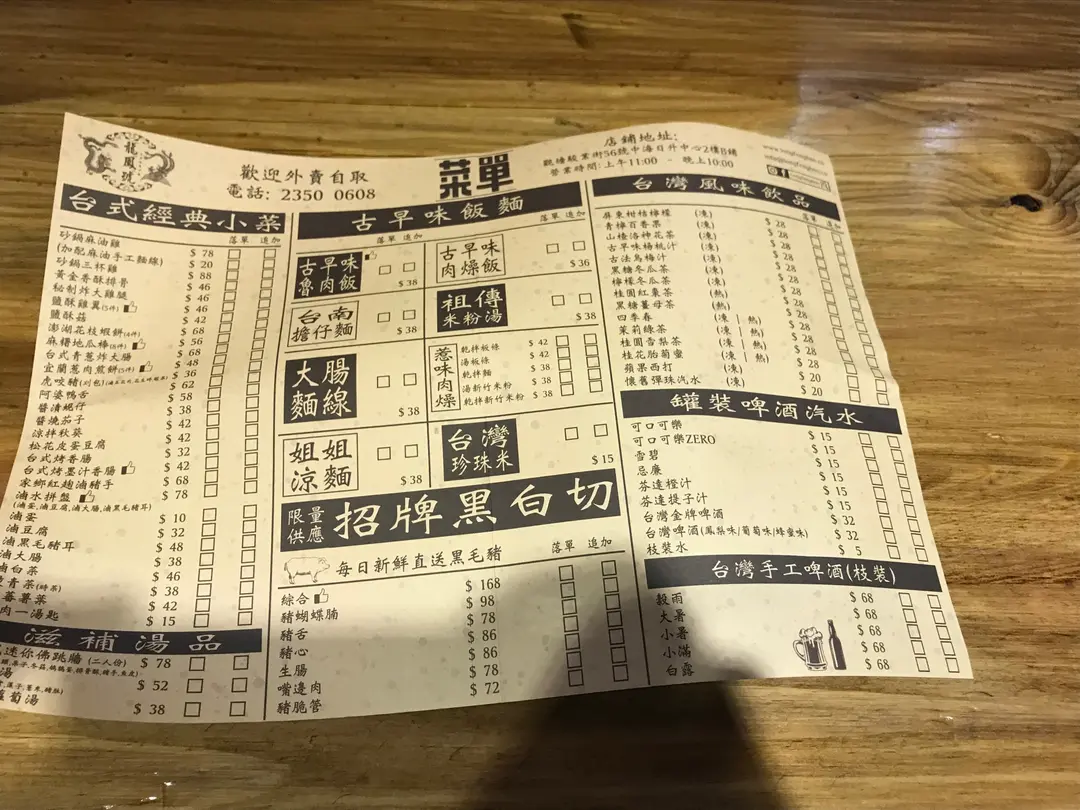 龍鳳號
歡迎外賣自取
電話: 2350 0608
菜單
店鋪地址:
觀塘駿業街56號中海日升中心2樓B鋪
營業時間: 上午11:00 - 晚上10:00
台式經典小菜
落單 追加
砂鍋麻油雞 $ 78
(加配麻油手工麵線) $ 20
砂鍋三杯雞 $ 88
黃金香酥排骨 $ 46
秘制炸大雞腿 $ 46
鹽酥雞翼(5件) $ 42
鹽酥菇
澎湖花枝蝦餅(4件) $ 68
麻糬地瓜棒(5件) $ 56
台式青蔥炸大腸 $ 68
宜蘭蔥肉煎餅(5件) $ 48
虎咬豬(刈包) $ 36
阿婆鴨舌 $ 62
醬漬蜆仔 $ 58
醬燒茄子 $ 38
涼拌秋葵 $ 42
松花皮蛋豆腐 $ 42
台式烤香腸 $ 32
台式烤墨汁香腸 $ 42
家鄉紅麴滷豬手 $ 68
滷水拼盤 $ 78
(滷蛋,滷豆腐,滷大腸,滷黑毛豬耳)
滷蛋 $ 10
滷豆腐 $ 32
滷黑毛豬耳 $ 48
滷大腸 $ 38
滷白菜 $ 46
青菜(時菜) $ 38
蕃薯葉 $ 42
肉一湯匙 $ 15
滋補湯品
迷你佛跳牆 (二人份) $ 78
湯 $ 52
蘿蔔湯 $ 38
古早味飯麵
落單 追加
落單 追加
古早味
魯肉飯
$ 38
古早味
肉燥飯
$ 36
台南
擔仔麵
$ 38
祖傳
米粉湯
$ 38
大腸
麵線
$ 38
惹味肉燥
乾拌板條 $ 42
湯板條 $ 42
乾拌麵 $ 38
湯新竹米粉 $ 38
乾拌新竹米粉 $ 38
姐姐
涼麵
$ 38
台灣
珍珠米
$ 15
限量
供應
招牌黑白切
每日新鮮直送黑毛豬
落單 追加
綜合 $ 168
豬蝴蝶腩 $ 98
豬舌 $ 78
豬心 $ 86
生腸 $ 86
嘴邊肉 $ 78
豬脆管 $ 72
台灣風味飲品
落單 追加
屏東柑桔檸檬 (凍) $ 28
青檸百香果 (凍) $ 28
山楂洛神花茶 (凍) $ 28
古早味楊桃汁 (凍) $ 28
古法烏梅汁 (凍) $ 28
黑糖冬瓜茶 (凍) $ 28
檸檬冬瓜茶 (凍) $ 28
桂圓紅棗茶 (熱) $ 28
黑糖薑母茶 (熱) $ 28
四季春 (凍 | 熱) $ 28
茉莉綠茶 (凍 | 熱) $ 28
桂圓雪梨茶 (凍 | 熱) $ 28
桂花胎菊蜜 (凍 | 熱) $ 28
蘋果西打 $ 20
懷舊彈珠汽水 (凍) $ 20
罐裝啤酒汽水
可口可樂 $ 15
可口可樂ZERO $ 15
雪碧 $ 15
忌廉 $ 15
芬達橙汁 $ 15
芬達提子汁 $ 15
台灣金牌啤酒 $ 32
台灣啤酒(鳳梨味/葡萄味/蜂蜜味) $ 32
枝裝水 $ 5
台灣手工啤酒(枝裝)
穀雨 $ 68
大暑 $ 68
小暑 $ 68
小滿 $ 68
白露 $ 68